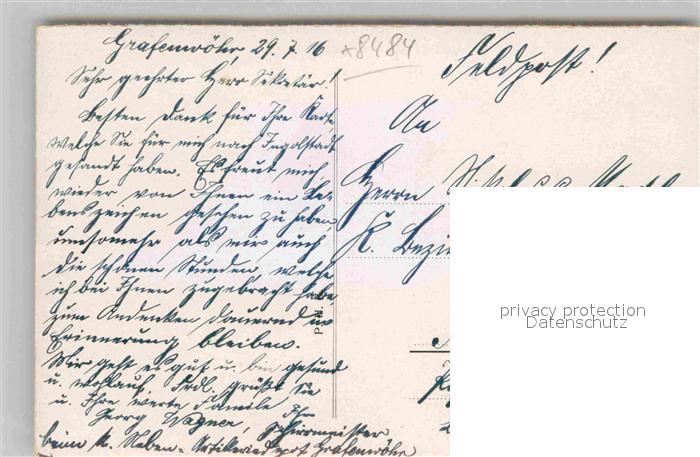 Grafenwöhr 29.7.16
*8484
Feldpost!
Sehr geehrter Herr Sekretär!
Besten Dank für Ihre Karte,
welche Sie für mich nach Ingolstadt
gesandt haben. Es freut mich,
wieder von Ihnen ein Le-
benszeichen gesehen zu haben,
umsomehr als mir auch
die schönen Stunden, welche
ich bei Ihnen zugebracht habe,
zum Andenken dauernd in
Erinnerung bleiben.
Mir geht es gut u. bin gesund
u. wohlauf. Frdl. grüßt Sie
u. Ihre werte Familie Ihr
Georg Wagner, Schirrmeister
beim K. Neben-Artilleriedepot Grafenwöhr
An
Herrn
K.
privacy protection
Datenschutz